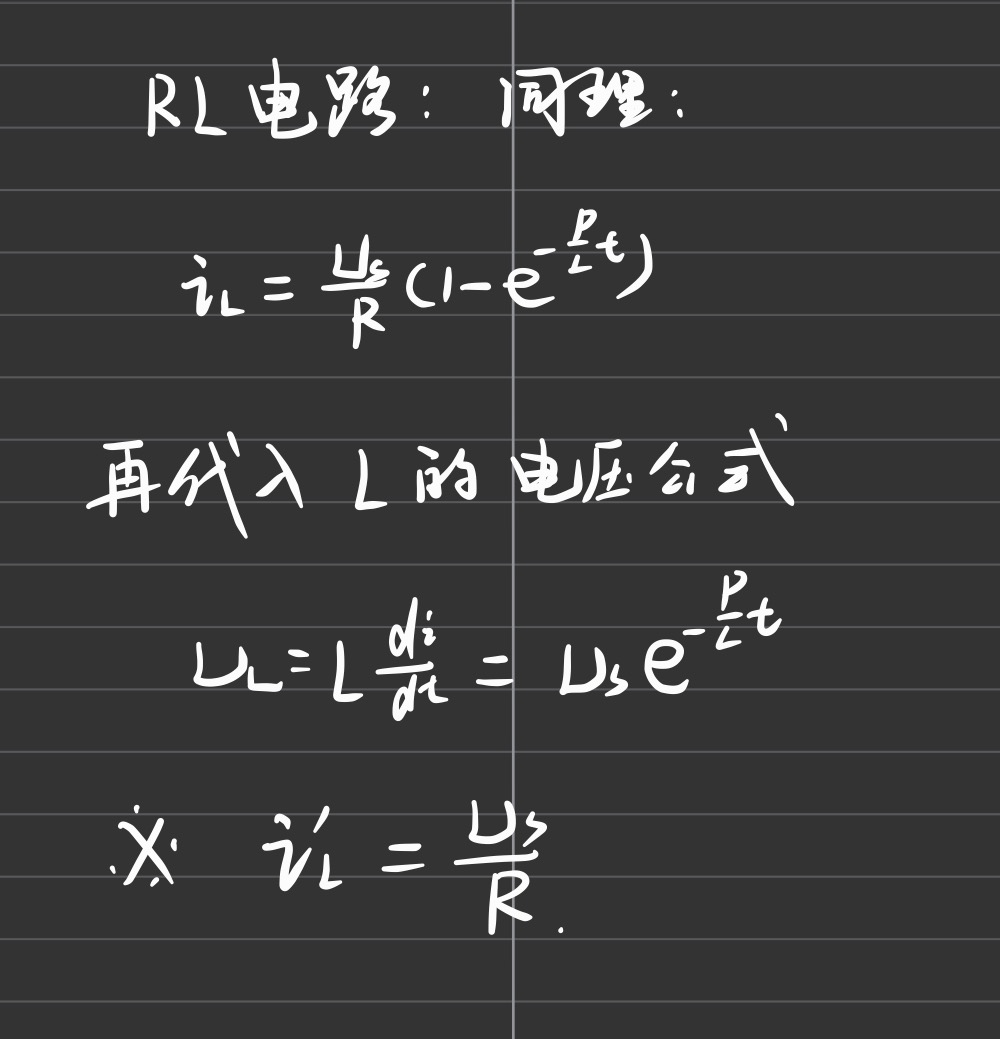 RL 电路：同理：
i_L = \frac{U_s}{R}(1-e^{-\frac{R}{L}t})
再代入 L 的电压公式
U_L = L\frac{di}{dt} = U_s e^{-\frac{R}{L}t}
※ i'_L = \frac{U_s}{R}.